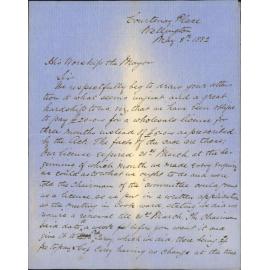 Courtenay Place
Wellington
May 8th 1882
His Worship the Mayor
Sir
We respectfully beg to draw your atten
tion to what seems unjust and a great
hardship to us viz, that we have been obliged
to pay £20.0.0 for a wholesale license for
three months instead of as presented
by the Act. The facts of the case are these,
Our license expired 31st March at the be
ginning of which month we made every inquiry
we could as to what we ought to do and were
told the Chairman of the Committee could grant
us a license, so we put in a written application
at the meeting in Cook ward stating we would
require a renewal the 31st March. The Chairman
said a week before you want it and
give it to Carey which we did there being
Carey having no change at the time